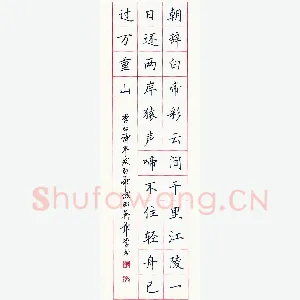 朝辞白帝彩云间千里江陵一
日还两岸猿声啼不住轻舟已
过万重山
ShufaWang.CN